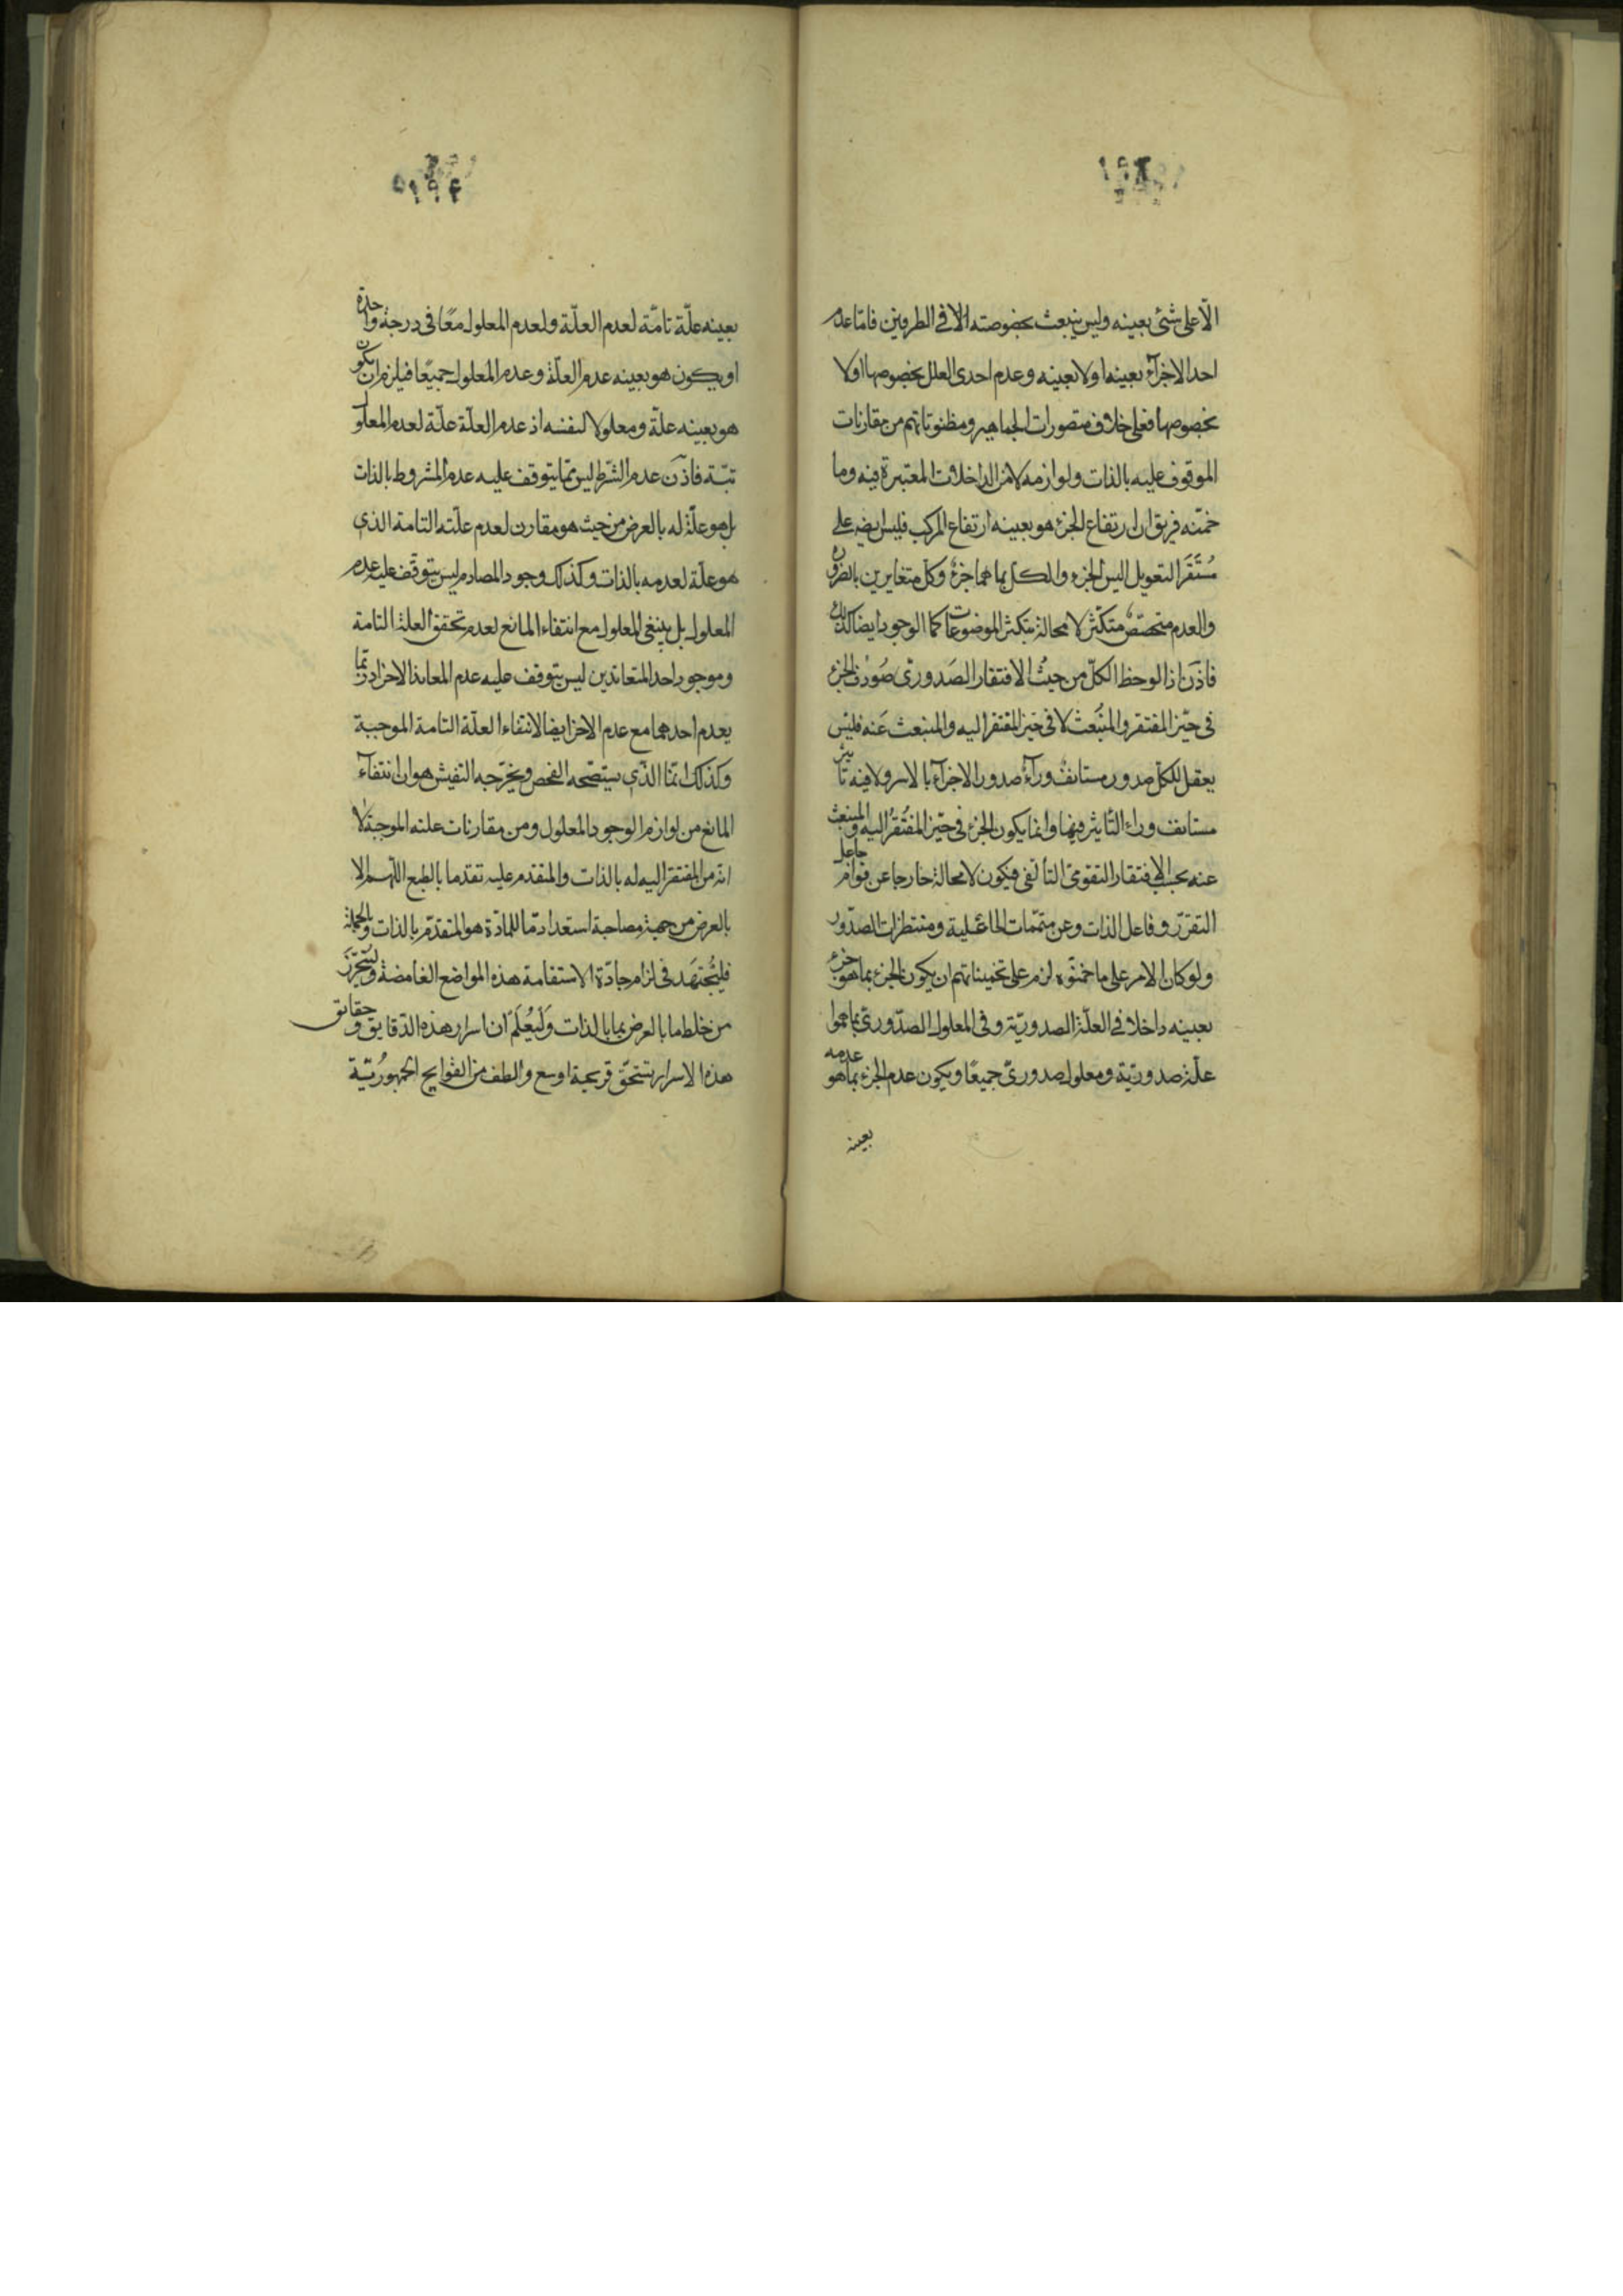 الّا على شئ بعينه وليس ينبعث بخصوصته الا فى الطرفين فاما عدم
احد الاجزآء بعينه او لا بعينه وعدم احدى العلل بخصوصها او لا
بخصوصها فعلى خلاف متصورات الجماهير ومظنوناتهم من مقارنات
الموقوف عليه بالذات ولوازمه لا من الداخلات المعتبرة فيه وما
خمّنه فريق ان ارتفاع الجزء هو بعينه ارتفاع المركب فليس ايضه على
مُستَقَر التعويل اليس الجزء والكل بما هما جزء وكل متغايرين بالضرورة
والعدم متخصّص متكثّر لا محالة بتكثر الموضوعات كما الوجود ايضا كذلك
فاذن اذا لوحظ الكلّ من حيث الافتقار الصدورىّ صُودف الجزء
فى حيّز المفتقر والمنبعث لا فى حيّز المفتقر اليه والمنبعث عنه فليس
يعقل للكل صدور مستانف ورآء صدور الاجزآء بالاسر ولا فيه تاثير
مستانف وراء التأثير فيها وانما يكون الجزء فى حيّز المفتقر اليه والمنبعث
عنه بحسب الافتقار التقومىّ التألفى فيكون لا محالة خارجا عن قوام جاعل
التقرّر وفاعل الذات وعن متمّمات الجاعلية ومنتظرات الصدّور
ولو كان الامر على ما خمنّوه لزم على تخميناتهم ان يكون الجزء بما هو جزء
بعينه داخلا فى العلّة الصدوريّة وفى المعلول الصدّورىّ بما هوا
علّة صدوريّة ومعلول صدورىّ جميعًا ويكون عدم الجزء بما هو عدمه
بعينه
بعينه علّة تامّة لعدم العلّة ولعدم المعلول معًا فى درجة واحدة
او يكون هو بعينه عدم العلّة وعدم المعلول جميعًا فيلزم ان يكون
هو بعينه علّة ومعلولا لنفسه اذ عدم العلّة علّة لعدم المعلول
تبّة فاذن عدم الشّرط ليس ممّا يتوقف عليه عدم المشروط بالذات
بل هو علّة له بالعرض من حيث هو مقارن لعدم علّته التامة الذى
هو علّة لعدمه بالذات وكذلك وجود المصادم ليس يتوقف عليه عدم
المعلول بل ينبغى المعلول مع انتفاء المانع لعدم تحقق العلة التامة
وموجود احد المتعاندين ليس يتوقف عليه عدم المعاند الاخر اذ ربّما
يعدم احدهما مع عدم الاخر ايضا لانتفاء العلّة التامة الموجبة
وكذلك انمّا الذّى يستصّحه الفحص ويخرّجه التفتيش هو ان انتفآء
المانع من لوازم الوجود المعلول ومن مقارنات علته الموجبة لا
انّه من المفتقر اليه له بالذات والمتقدم عليه تقدّما بالطبع اللّهم الا
بالعرض من جهة مصاحبة استعداد مّا للمادّة هو المتقدّم بالذات وبالجملة
فليُجتهَد فى لزام جادّة الاستقامة هذه المواضع الغامضة وليتحرّز
من خلط ما بالعرض بما بالذات وَليُعلَم ان اسرار هذه الدّقايق وحقايق
هذه الاسرار تستحقّ قريحة اوسع والطف من القرايح الجمهوريّة